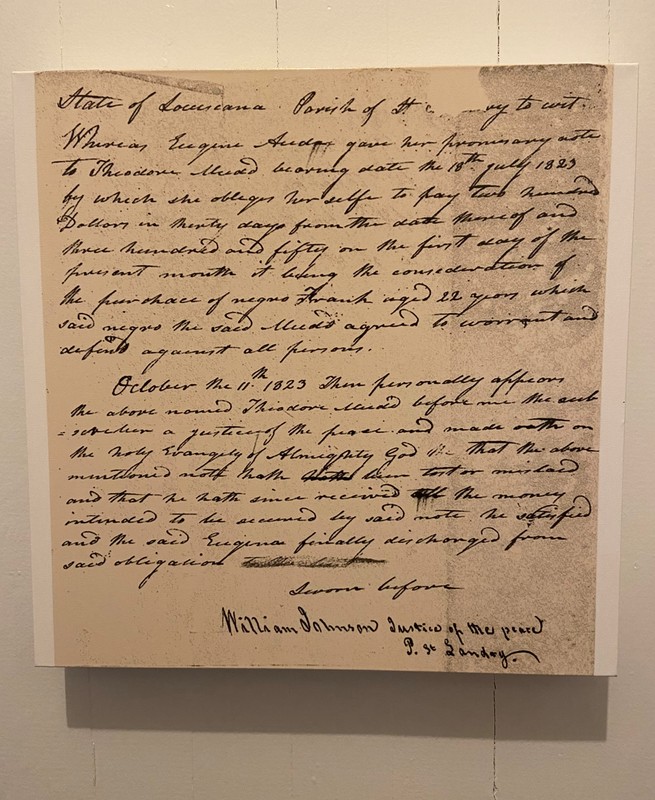 State of Louiseana Parish of St ry to wit.
Whereas Eugine gave her promisary note
to Theodore Mudd bearing date the 18th July 1823
by which she obleges her selfe to pay two hundred
Dollars in therty days from the date thereof and
three hundred and fifty on the first day of the
present month it being the consederation of
the purchace of negro Frank aged 22 years which
said negro the said Mudd agreed to warrant and
defend against all persons.
October the 11th 1823 Then personally appears
the above named Theodore Mudd before me the sub
= a justice of the peace and made oath on
the holy Evangely of Almighty God that the above
mentioned note hath been lost or mislaed
and that he hath since received all the money
intended to be secured by said note he satisfied
and the said Eugena finally discharged from
said obligation
Sworn before
William Johnson Justice of the peace
P. St Landry.